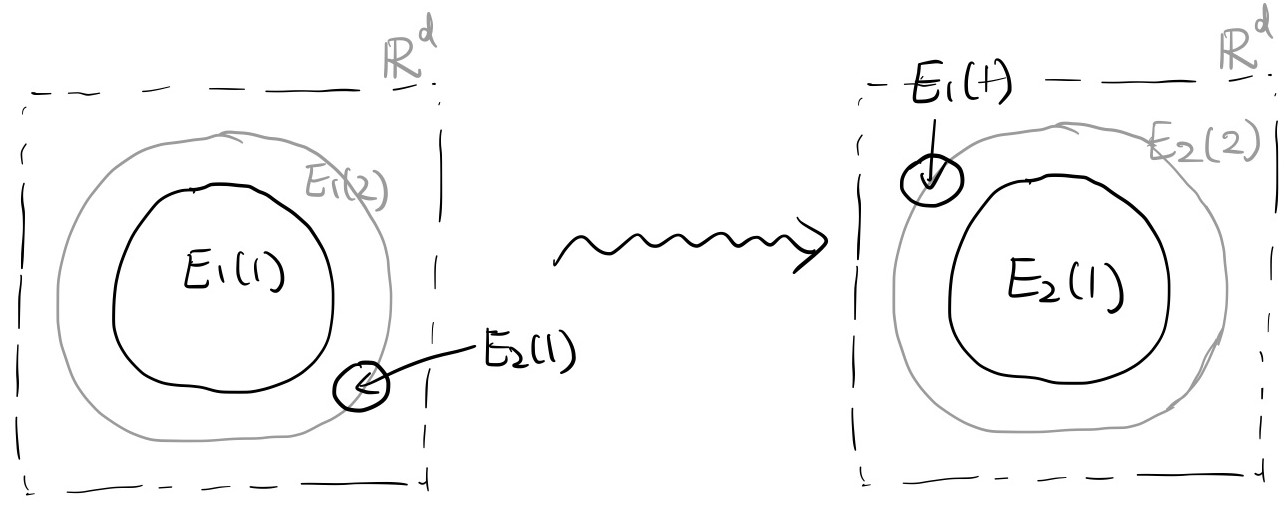 ℝᵈ
E₁(2)
E₁(1)
E₂(1)
ℝᵈ
E₁(1)
E₂(2)
E₂(1)